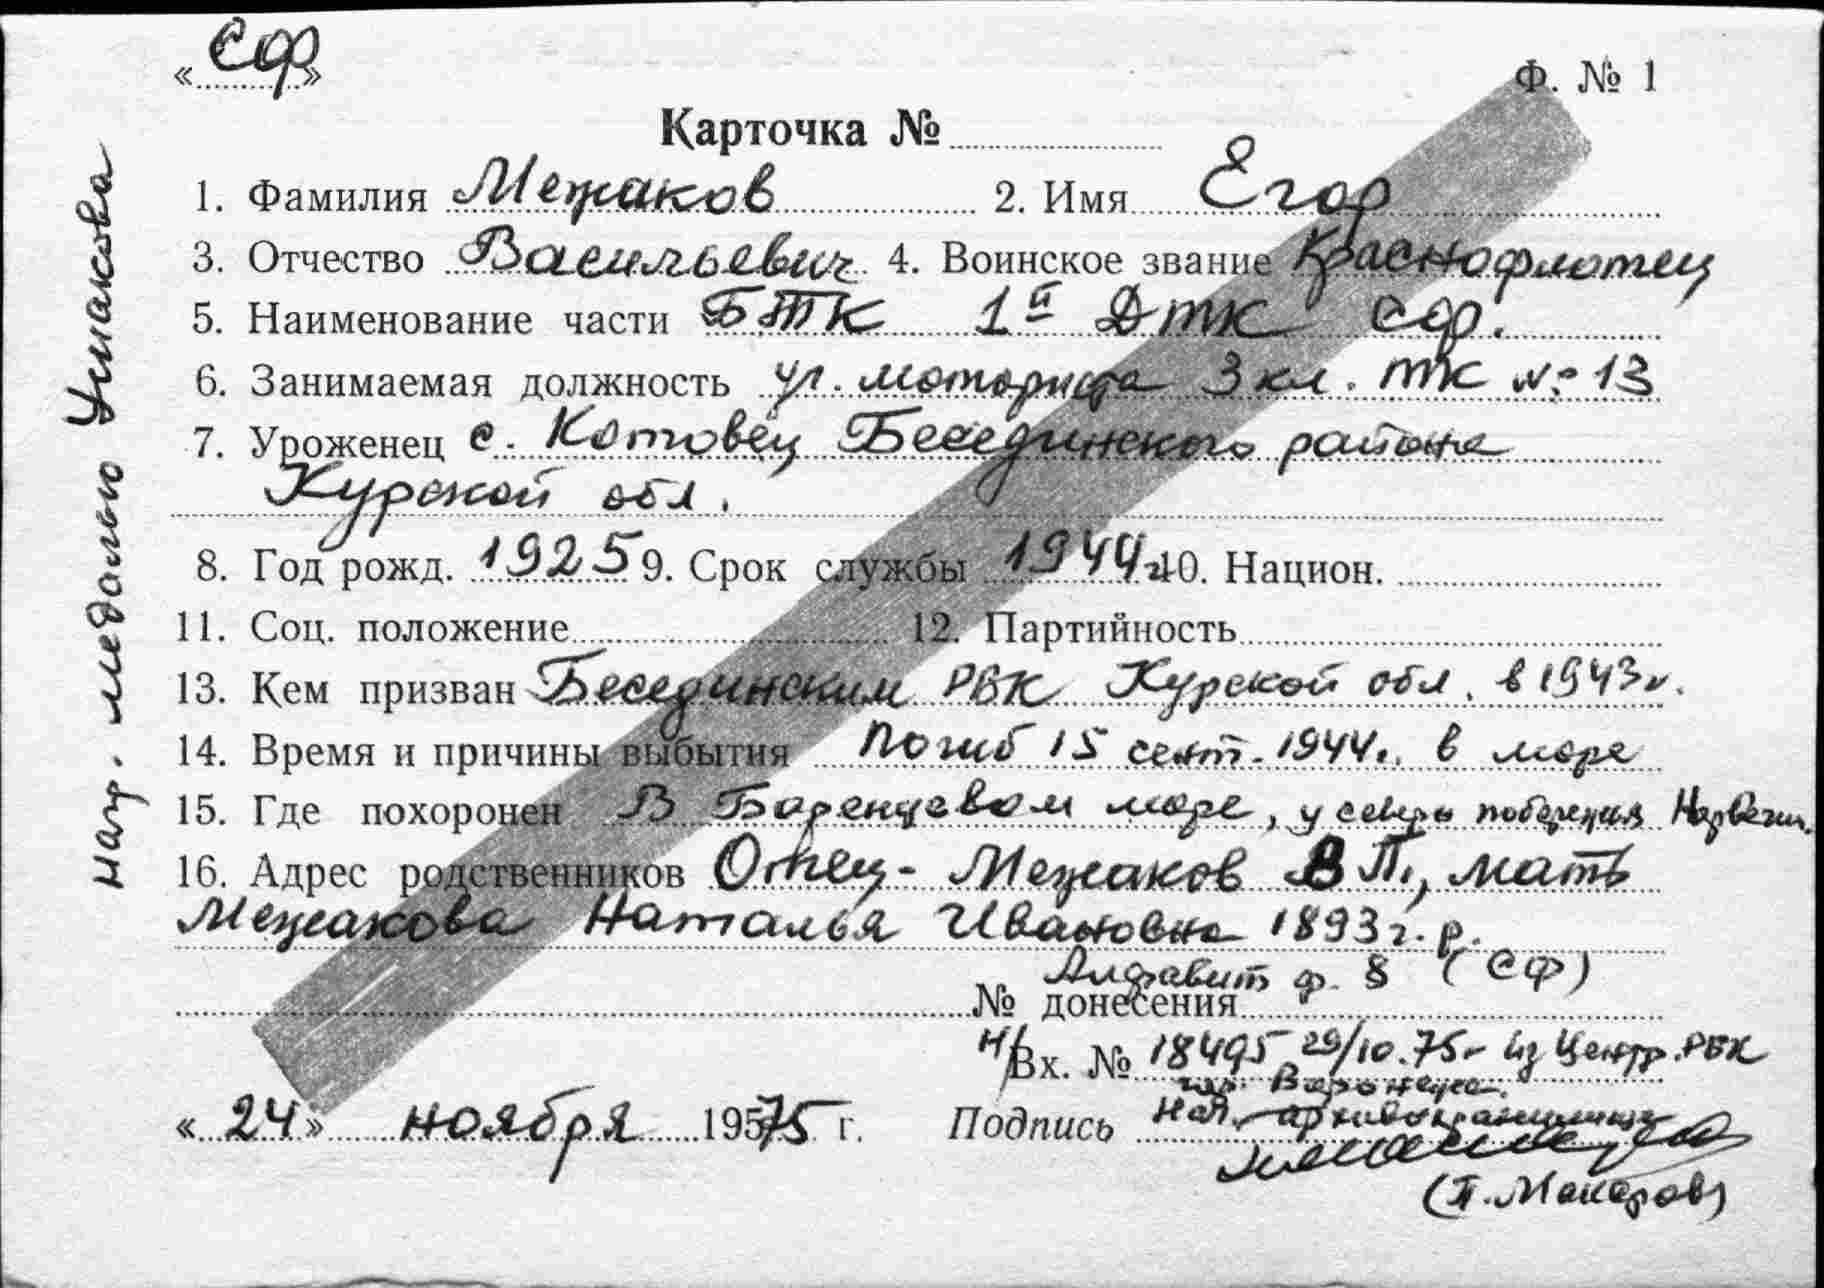 « СФ »
Ф. № 1
Карточка №
1. Фамилия Межаков 2. Имя Егор
3. Отчество Васильевич 4. Воинское звание Краснофлотец
5. Наименование части БТК 1й ДТК СФ.
6. Занимаемая должность уч. моториста 3 кл. ТК № 13
7. Уроженец с. Котовец Бесединского района
Курской обл.
8. Год рожд. 1925 9. Срок службы 1944г 10. Национ.
11. Соц. положение 12. Партийность
13. Кем призван Бесединским РВК Курской обл. в 1943г.
14. Время и причины выбытия Погиб 15 сент. 1944г. в море
15. Где похоронен В Баренцевом море, у севера побережья Норвегии.
16. Адрес родственников Отец - Межаков В П., мать
Межакова Наталья Ивановна 1893 г. р.
Алфавит ф. 8 (СФ)
№ донесения
н/Вх. № 18495 29/10.75г из Центр. РВК
гор. Воронежа.
«24» ноября 1975 г. Подпись Нач. архивохранилища
(П. Макаров)
наг. медалью Ушакова